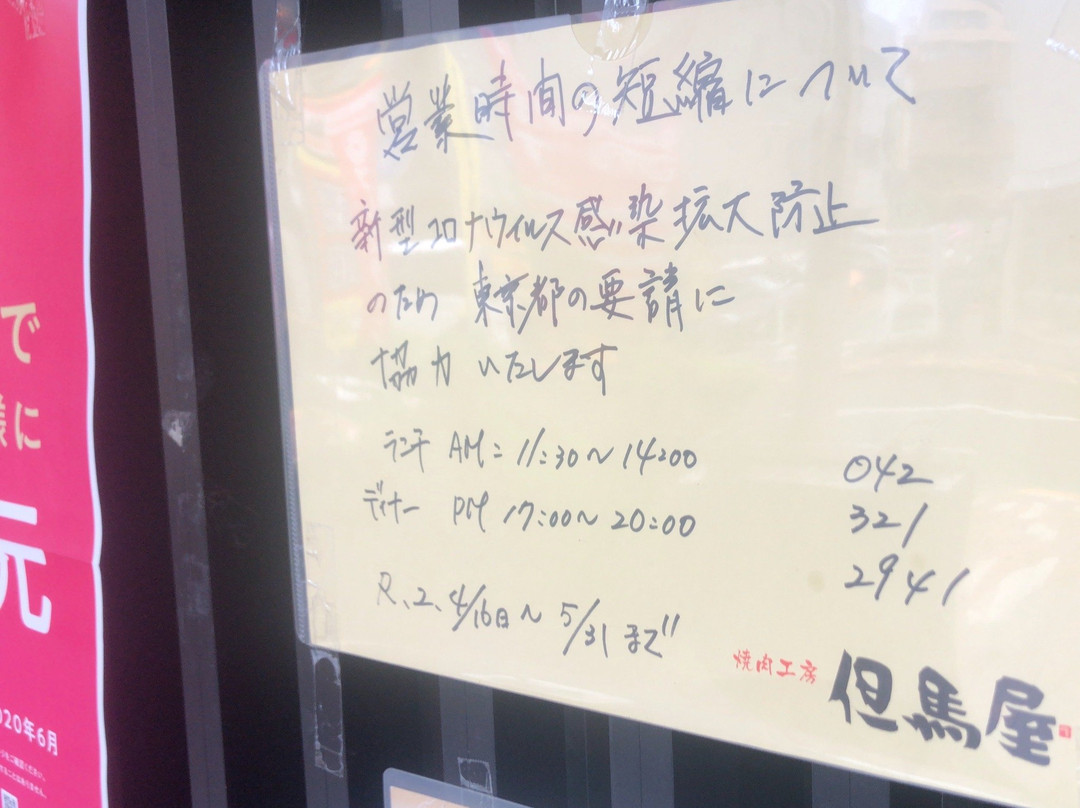 営業時間の短縮について
新型コロナウイルス感染拡大防止
のため 東京都の要請に
協力いたします
ランチ AM:11:30~14:00
ディナー PM 17:00~20:00
R.2.4/16日~5/31まで
042
321
2941
焼肉工房
但馬屋
で
様に
元
020年6月